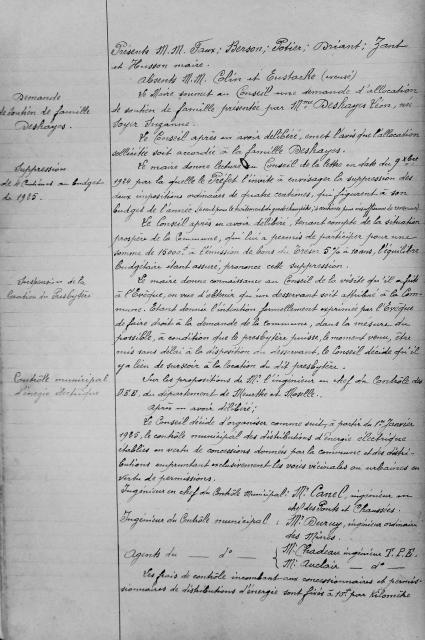 Présents M.M. Faux; Berson; Potier; Briant; Zant
et Husson maire.
Absents M.M. Colin et Eustache (excusé)
Demande
de soutien de famille
Deshayes.
Le Maire soumet au Conseil une demande d'allocation
de soutien de famille présentée par Mme Deshayes Léon, née
Soyer Suzanne.
Le Conseil après en avoir délibéré, émet l'avis que l'allocation
sollicitée soit accordée à la famille Deshayes.
Suppression
de 4 Centimes au budget
de 1925.
Le maire donne lecture au Conseil de la lettre en date du 9 xbre
1924 par laquelle le Préfet l'invite à envisager la suppression des
deux impositions ordinaires de quatre centimes, qui figurent à son
budget de l'année
Le Conseil après en avoir délibéré, tenant compte de la situation
prospère de la Commune, qui lui a permis de participer pour une
somme de 15000f à l'émission de bons du Trésor 5% à 10 ans, l'équilibre
budgétaire étant assuré, prononce cette suppression.
Suspension de la
location du Presbytère
Le maire donne connaissance au Conseil de la visite qu'il a faite
à l'Evêque, en vue d'obtenir qu'un desservant soit attribué à la Com-
mune. Etant donné l'intention formellement exprimée par l'Evêque
de faire droit à la demande de la commune, dans la mesure du
possible, à condition que le presbytère puisse, le moment venu, être
mis sans délai à la disposition du desservant, le Conseil décide qu'il
y a lieu de surseoir à la location du dit presbytère.
Contrôle municipal
d'énergie électrique
Sur les propositions de Mr l'ingénieur en chef du Contrôle des
D.E.E. du département de Meurthe et Moselle.
après en avoir délibéré;
Le Conseil décide d'organiser comme suit, à partir du 1er Janvier
1925, le contrôle municipal des distributions d'énergie électrique
établies en vertu de concessions données par la commune et des distri-
butions empruntant exclusivement les voies vicinales ou urbaines en
vertu de permissions.
Ingénieur en chef du Contrôle Municipal: Mr Canel, ingénieur en
chef des Ponts et Chaussées.
Ingénieur du Contrôle municipal : Mr Duruy, ingénieur ordinaire
des Mines.
Agents du — d° — { Mr Chadeau ingénieur T.P.E.
Mr Auclair — d° —
Les frais de contrôle incombant aux concessionnaires et permis-
sionnaires de distributions d'énergie sont fixés à 10f par kilomètre